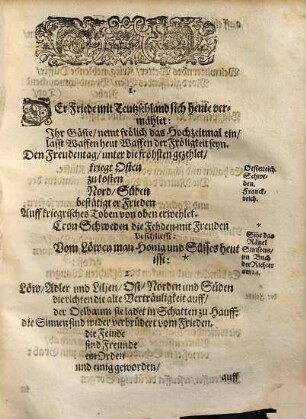 1.
DEr Friede mit Teutschland sich heute ver-
mählet:
Ihr Gäste/ nemt frölich das Hochzeitmal ein/
lasst Waffen heut Waffen der Frölichkeit seyn.
Den Freudentag/ unter die fröhsten gezehlet/
kriegt Osten
zu kosten
Nord/ Süden
bestätigt er Frieden
Auff kriegrisches Toben von oben erwehlet.
Cron Schweden die Fehden mit Freuden
beschliesst:
Vom Löwen man Honig und Süsses heut
isst: *
Oesterreich.
Schwe-
den.
Franck-
reich.
* Sihe das
Rätzel
Simsons/
im Buch
der Richter
am 14.
2.
Löw/ Adler und Liljen/ Ost/ Norden und Süden
die richten die alte Verträuligkeit auff/
der Oelbaum sie ladet in Schatten zu Hauff:
die Sinnen sind wider verbrüdert vom Frieden.
die Feinde
sind Freunde
ein Orden
und einig geworden/
auff